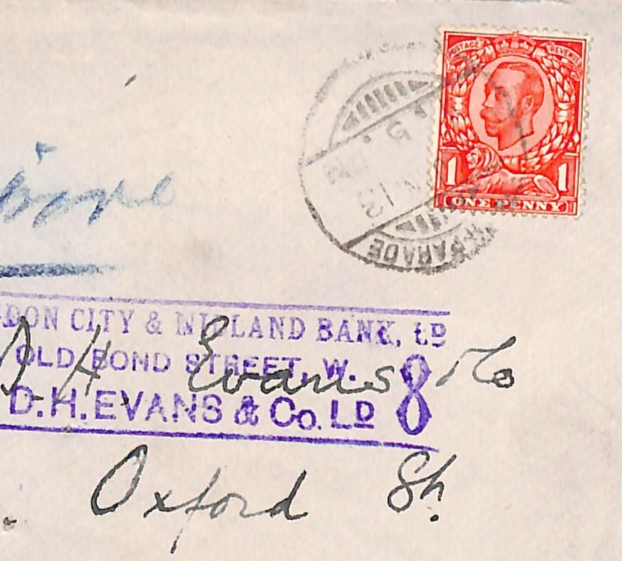 POSTAGE REVENUE
1 1
ONE PENNY
PARADE
DON CITY & MIDLAND BANK, LD
OLD BOND STREET, W.
D. H. Evans & Co
D.H. EVANS & Co. LD 8
Oxford St.